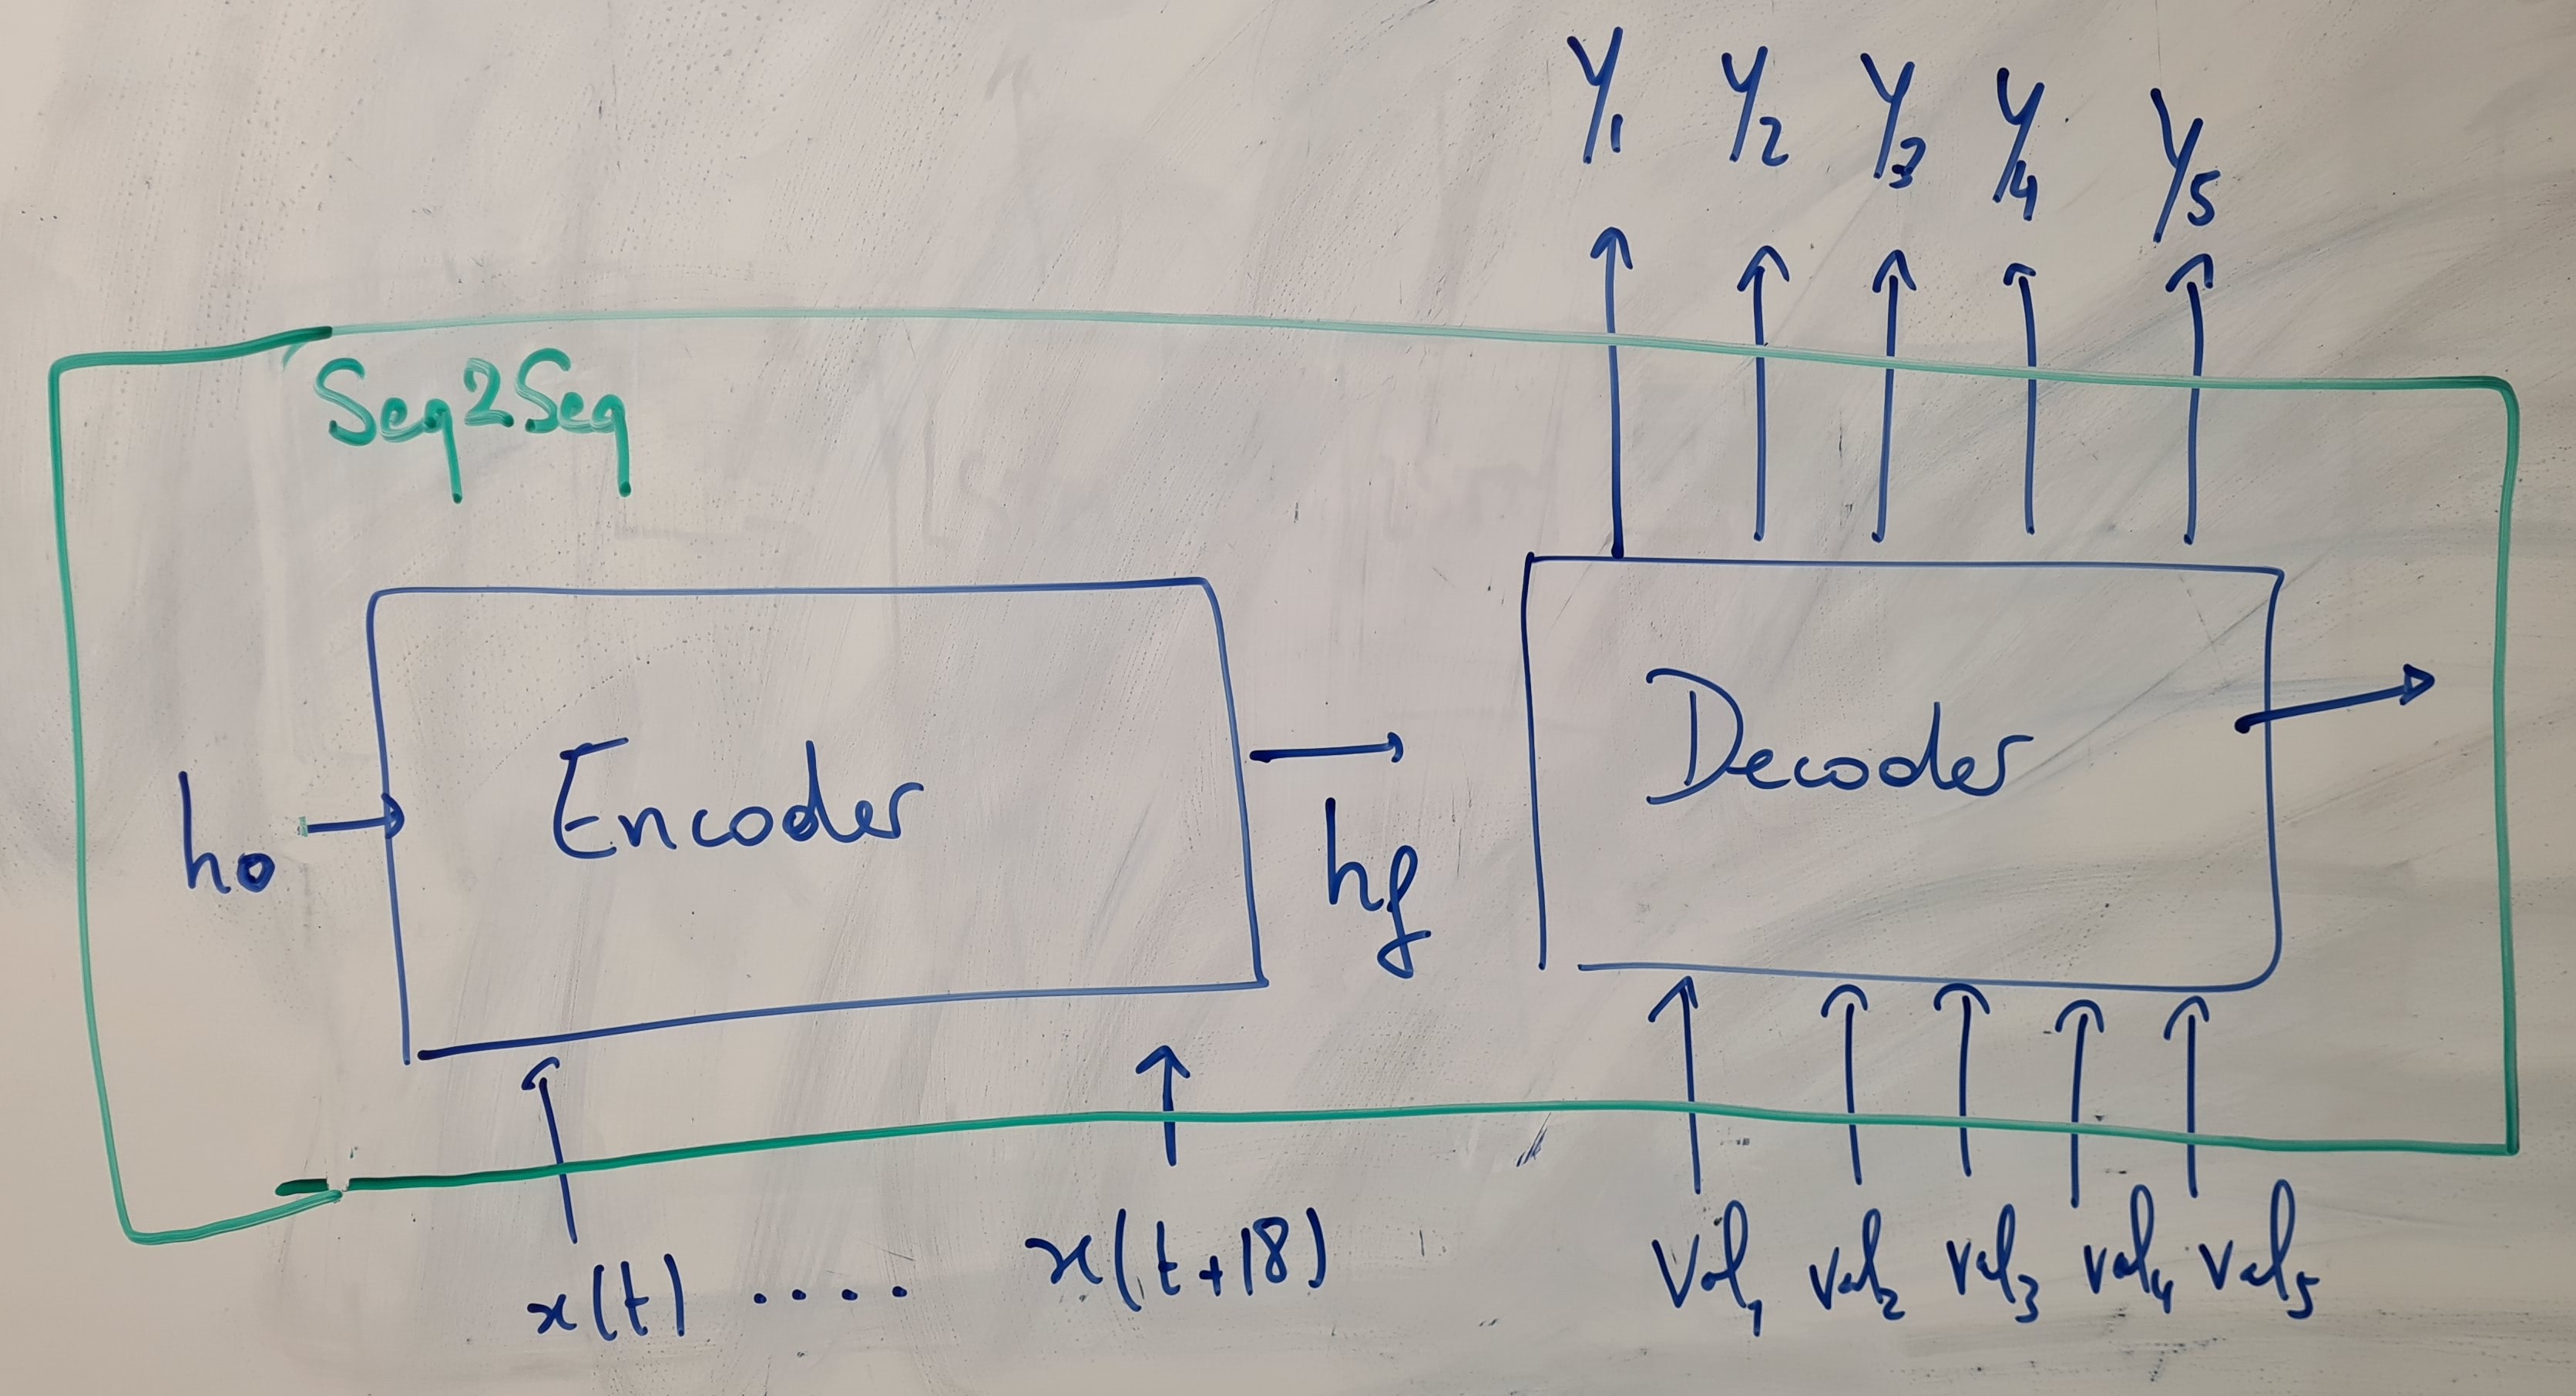 Y1 Y2 Y3 Y4 Y5
Seq2Seq
Encoder
Decoder
ho
hf
x(t) .... x(t+18)
Val1 Val2 Val3 Val4 Val5